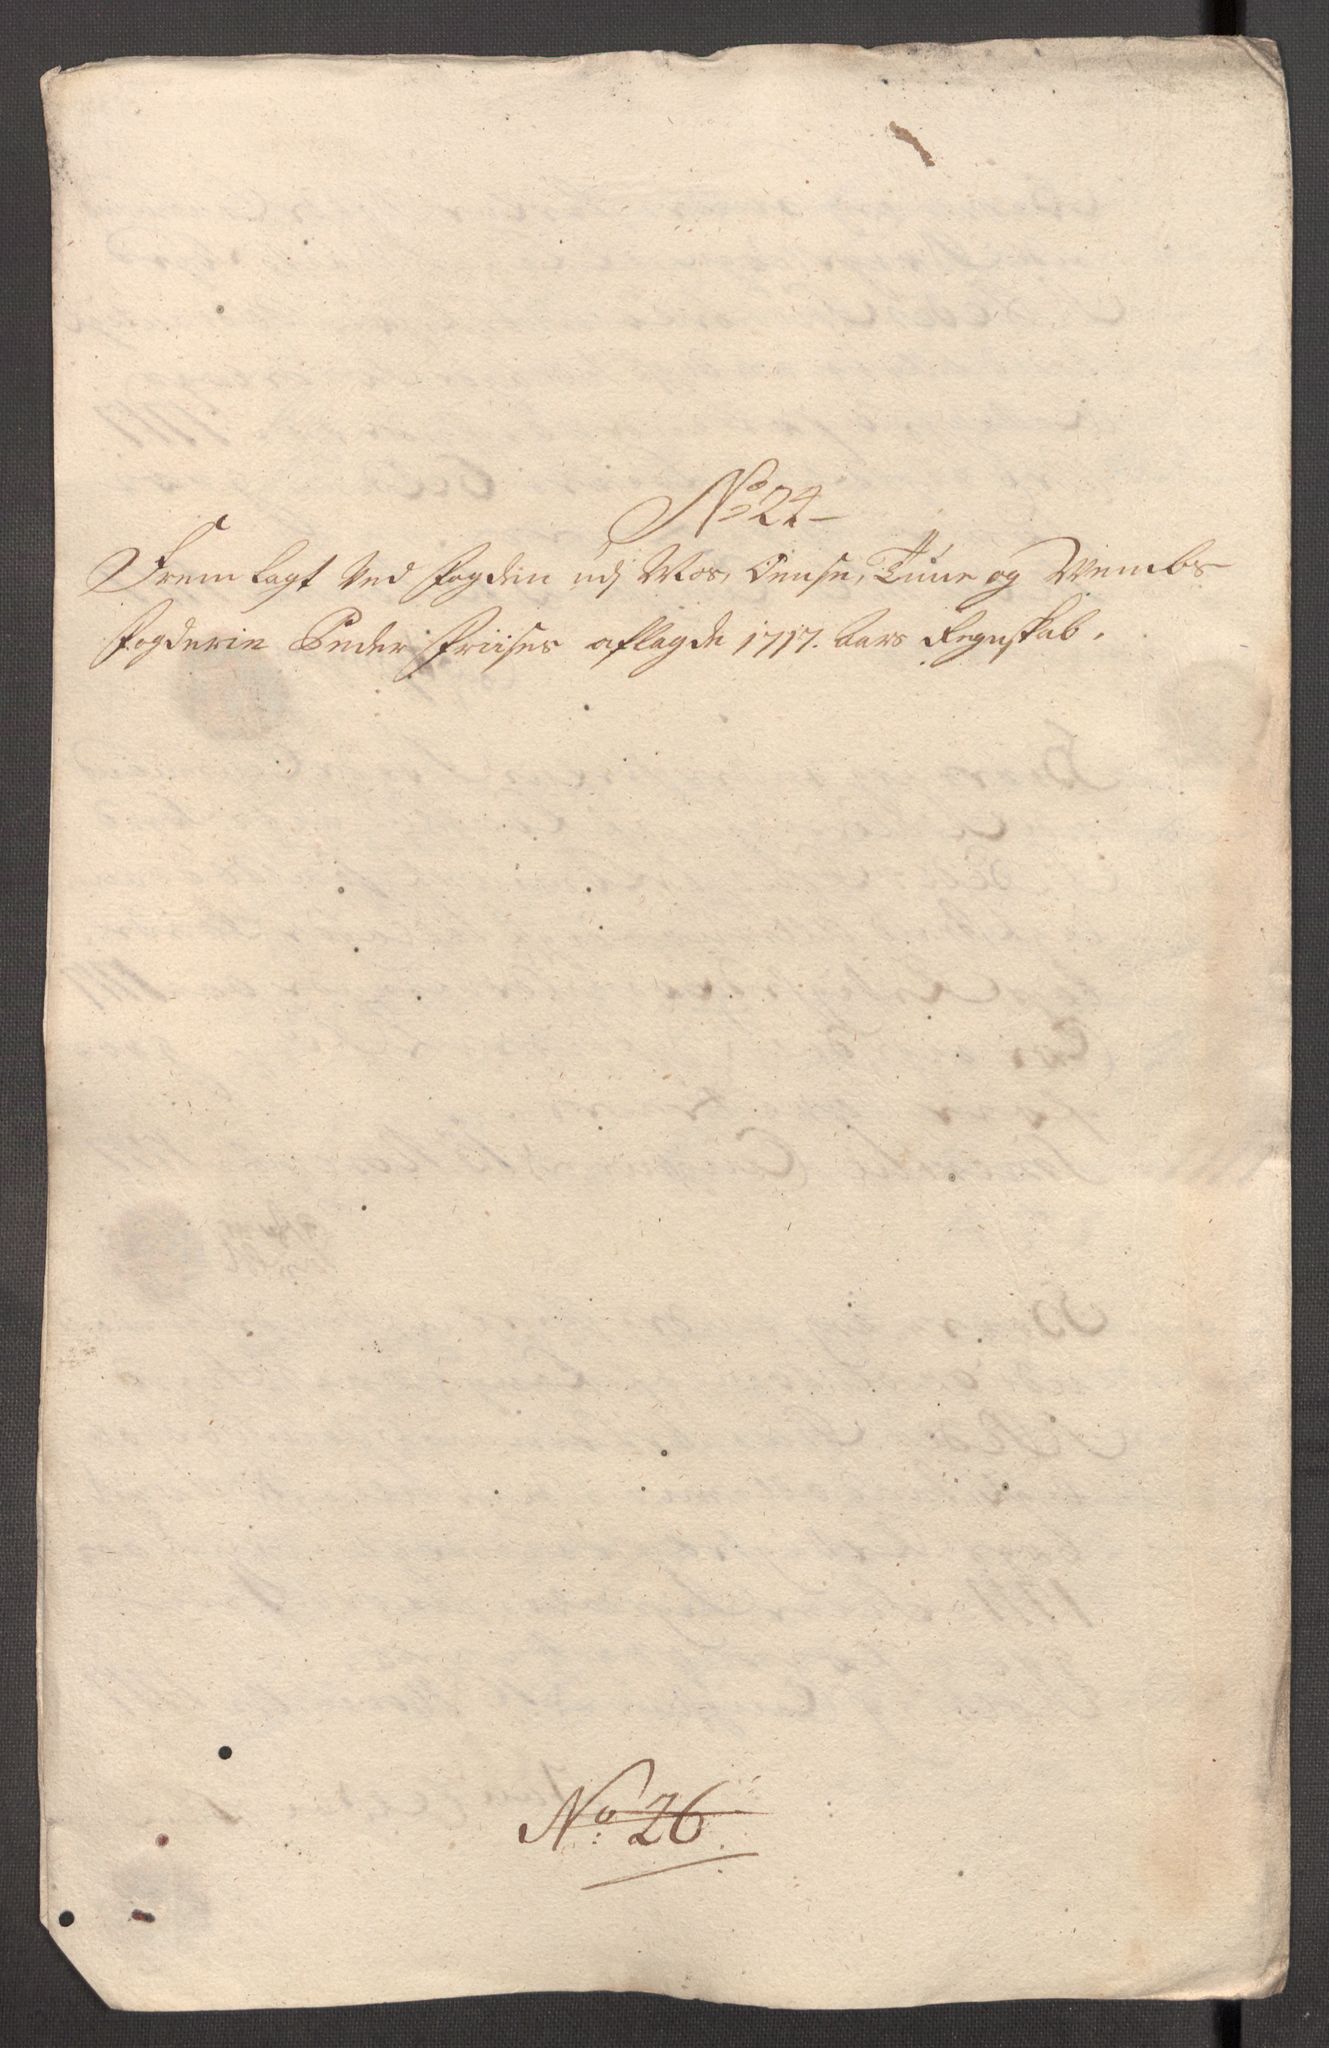 No 24
Frem lagt Ved fogden udj Mos, Onsøe, Tune og Wembs
fogderie Peder Friises aflagde 1717. Aars Regnskab.
No: 26